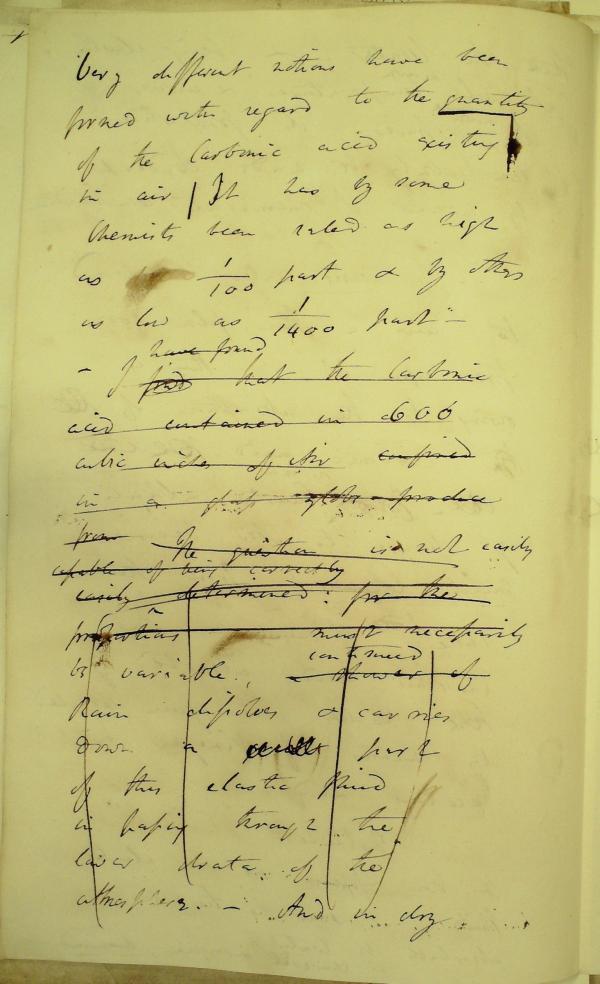 Very different notions have been
formed with regard to the quantity
of the Carbonic acid existing
in air | It has by some
Chemists been rated as high
as 1/100 part & by others
as low as 1/1400 part –
have found
– I find that the Carbonic
acid contained in 600
cubic inches of Air confined
in a glass globe produce
from The question is not easily
capable of being correctly
easily determined: for the
proportions must necessarily
continued
be variable. a shower of
Rain dissolves & carries
down a part
of this elastic fluid
in passing through the
lower strata of the
atmosphere. – And in dry